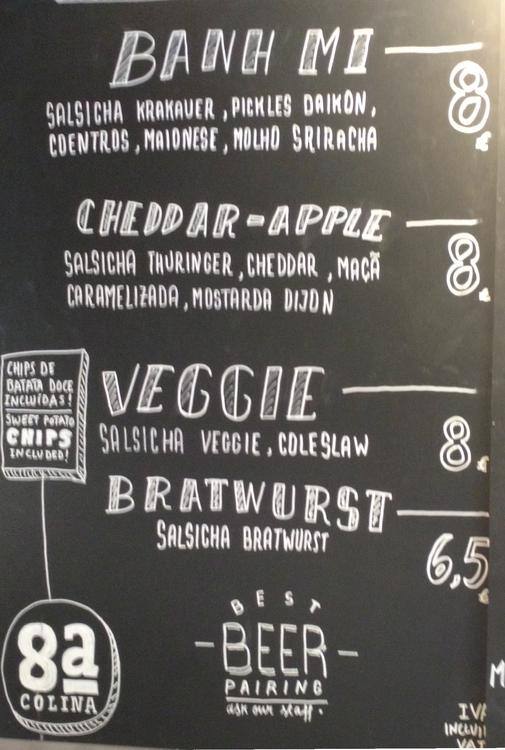 BANH MI 8€
SALSICHA KRAKAUER, PICKLES DAIKON,
COENTROS, MAIONESE, MOLHO SRIRACHA
CHEDDAR-APPLE 8€
SALSICHA THURINGER, CHEDDAR, MAÇÃ
CARAMELIZADA, MOSTARDA DIJON
CHIPS DE
BATATA DOCE
INCLUÍDAS!
SWEET POTATO
CHIPS
INCLUDED!
VEGGIE 8€
SALSICHA VEGGIE, COLESLAW
BRATWURST 6,5€
SALSICHA BRATWURST
8a
COLINA
BEST
BEER
PAIRING
ask our staff.